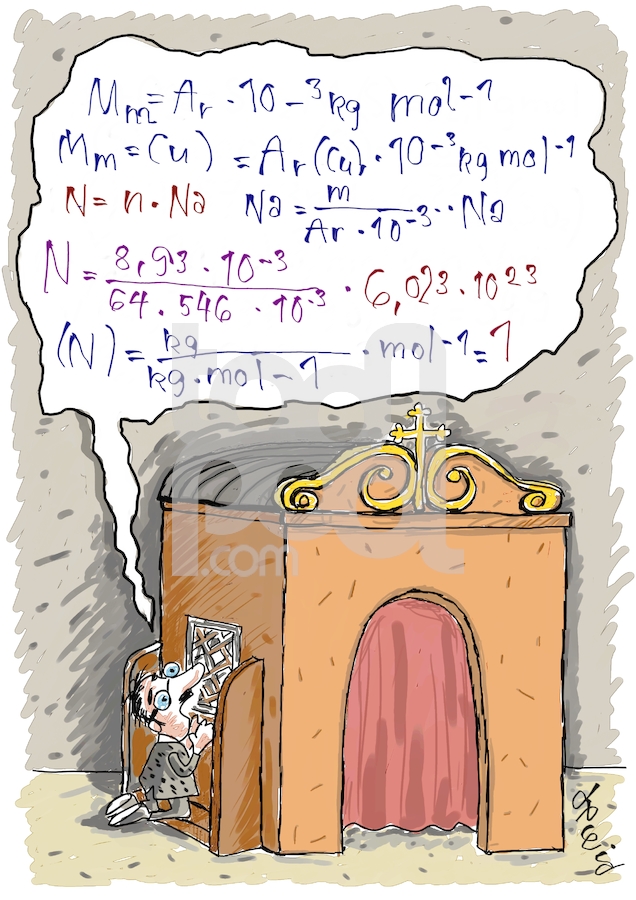 Mm = Ar · 10 – ³ kg mol – 1
Mm = (u) = Ar (Cu) · 10 – ³ kg mol – 1
N = n · Na Na = m / Ar · 10 – 3 · · Na
N = 8,93 · 10 – 3 / 64 · 546 · 10 – 3 · 6,023 · 10 23
(N) = kg / kg · mol – 1 · mol – 1 = 1
toonpool
.com